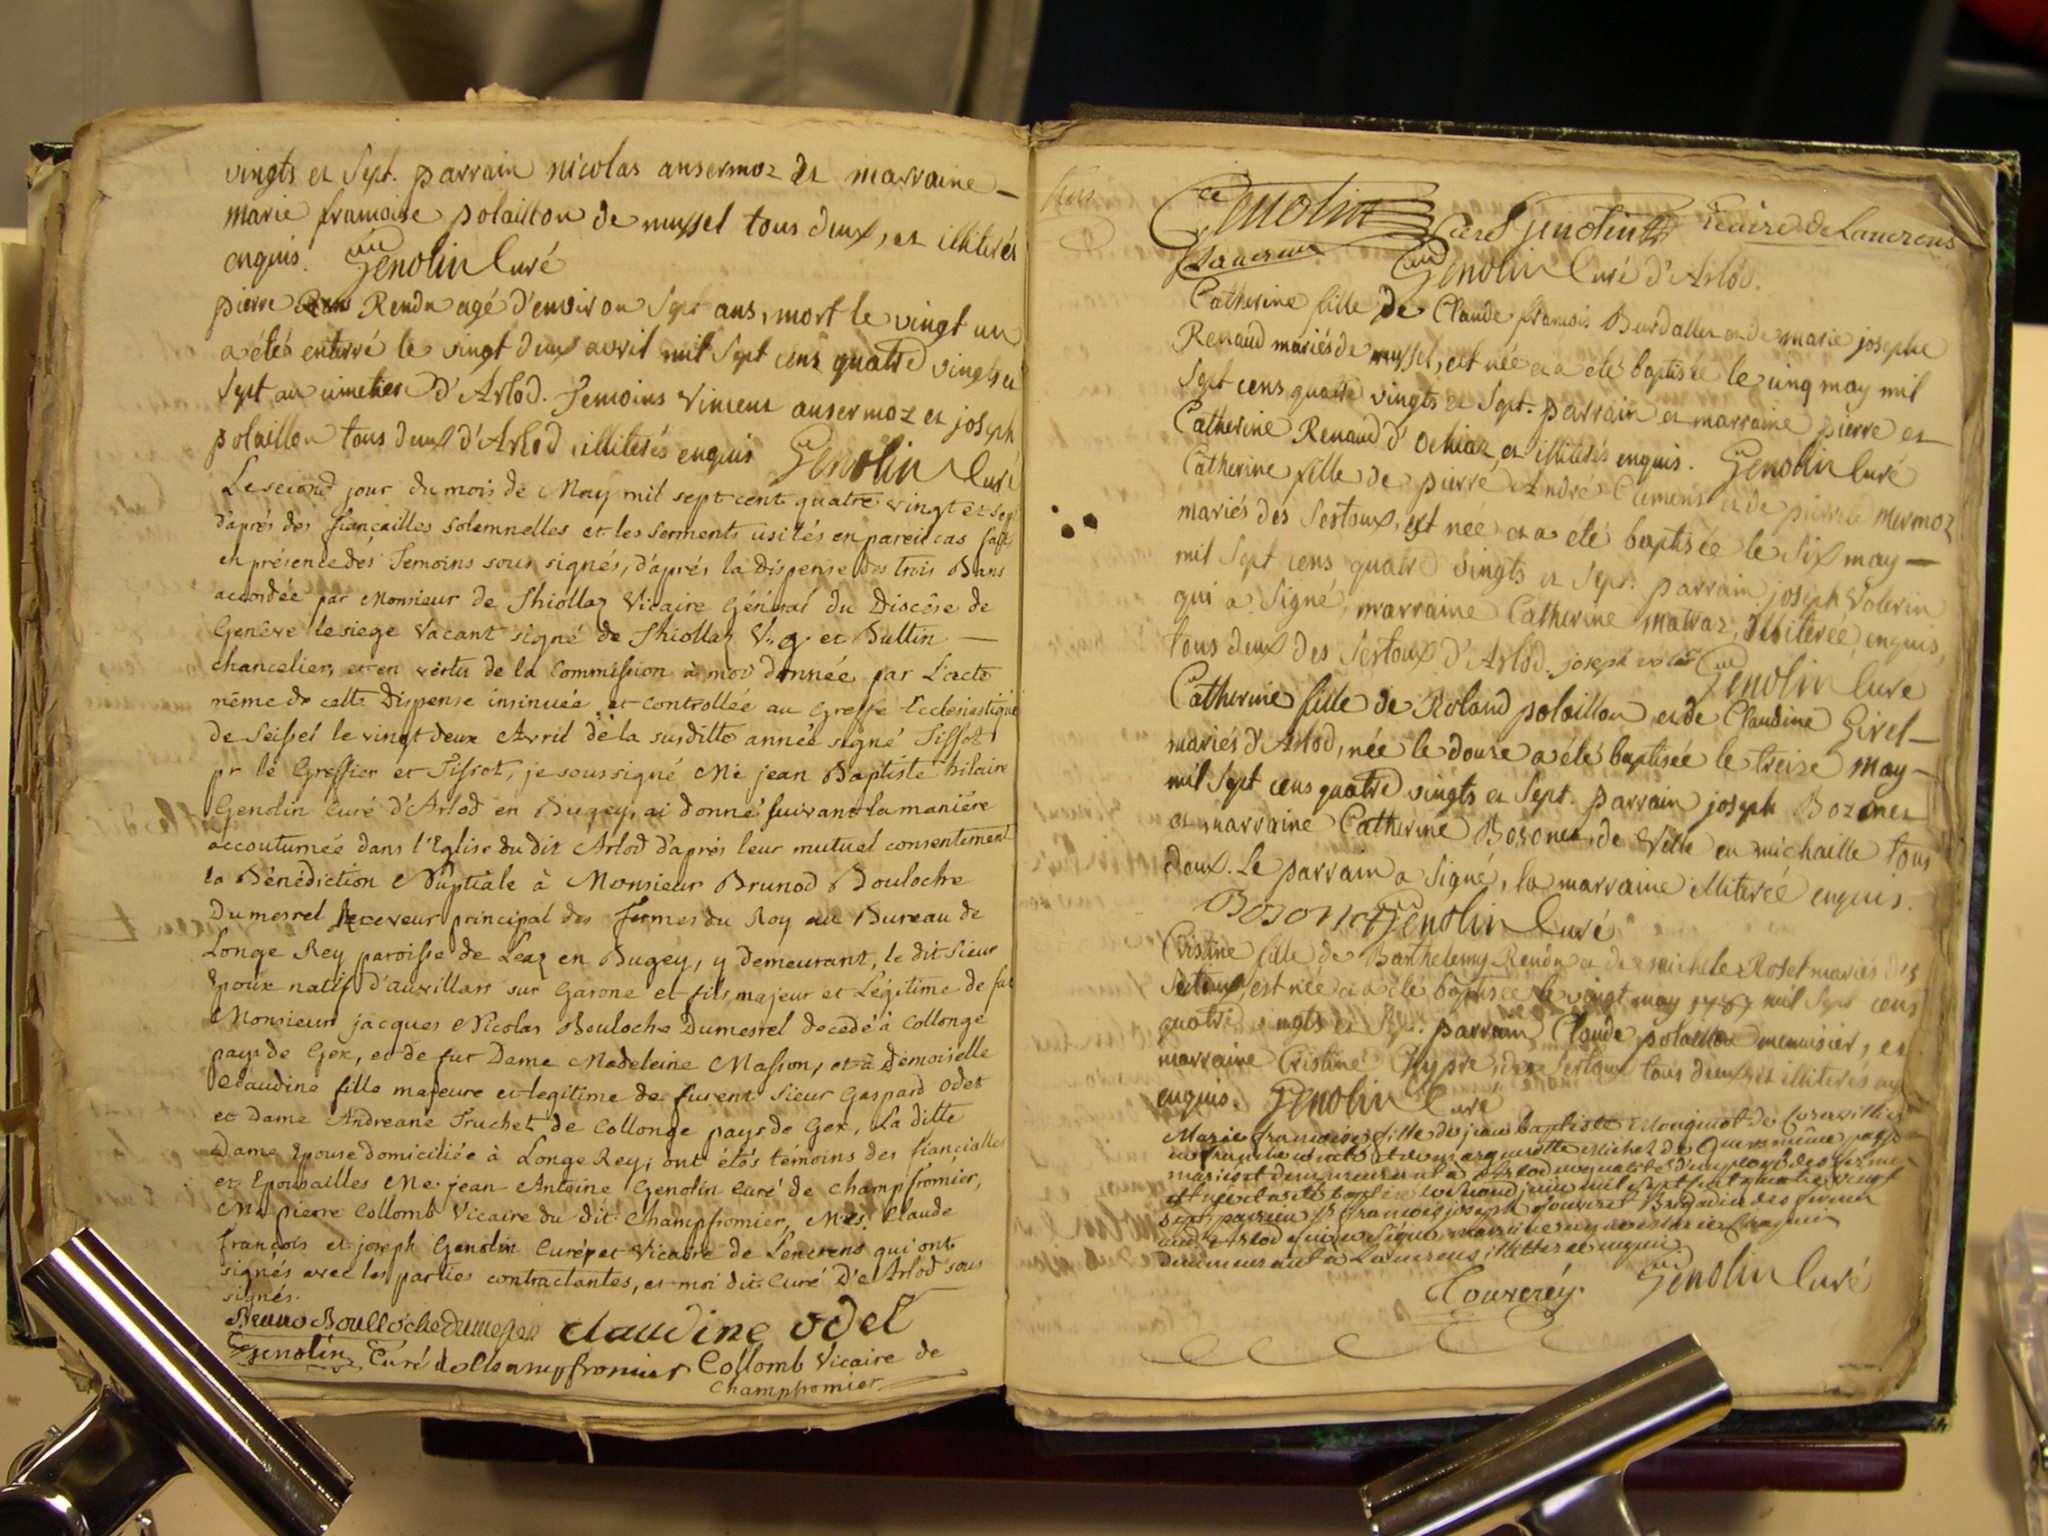 vingts et Sept. parrain nicolas ansermoz et marraine
marie francoise polaillon de mussel tous deux, et illiterés
enquis. Genolin Curé
pierre Rendu agé d'environ Sept ans, mort le vingt un
a été enterré le vingt deux avril mil Sept cens quatre vingts et
Sept au cimetiere d'Arlod. Temoins Vincent ansermoz et joseph
polaillon tous deux d'Arlod illiterés enquis Genolin Curé
Le second jour du mois de May mil sept cent quatre vingt et sept
d'aprés des fiancailles solemnelles et les serments usités en pareil cas faits
en présence des Temoins sous signés, d'aprés la Dispense des trois Bans
accordée par Monsieur de Thiollaz Vicaire Général du Diocése de
Genêve le siege Vacant signé de Thiollaz V. g. et Bullin
chancelier, et en vértu de la Commission à moi donnée par L'acte
même de cette Dispense insinuée et controllée au Greffe Ecclésiastique
de Seissel le vingt deux Avril de la susditte année signé Tissot
pr le Greffier et Tissot, je soussigné Me jean Baptiste hilaire
Genolin Curé d'Arlod en Bugey, ai donné suivant la maniére
accoutumée dans l'Eglise du dit Arlod d'aprés leur mutuel consentement
la Bénédiction Nuptiale à Monsieur Brunod Bouloche
Dumesrel Receveur principal des fermes du Roy au Bureau de
Longe Rey paroisse de Leaz en Bugey, y demeurant, le dit Sieur
Epoux natif d'auvillars sur Garone et fils majeur et Légitime de fut
Monsieur jacques Nicolas Bouloche Dumesrel decedé à Collonge
pays de Gex, et de fut Dame Madeleine Masson, et à Demoiselle
Claudine fille majeure et legitime de furent Sieur Gaspard Odet
et Dame Andreane Truchet de Collonge pays de Gex, La ditte
Dame Epouse domiciliée à Longe Rey, ont étés témoins des fiancialles
et Epousailles Me. jean Antoine Genolin Curé de Champfromier,
Me pierre Collomb Vicaire du dit Champfromier, Mes. Claude
françois et joseph Genolin Curé et Vicaire de Lencrens qui ont
signés avec les parties contractantes, et moi dit Curé D'Arlod sous
signés.
Bruno Boullôche dumesrel claudine odet
Genolin Curé de Champfromier Collomb Vicaire de
Champfromier
Genolin Genolin Vicaire de Lancrens
Lancrens Genolin Curé d'Arlod.
Catherine fille de Claude francois Burdallet et de marie josephe
Renaud mariés de mussel, est née et a été baptisée le cinq may mil
Sept cens quatre vingts et Sept. parrain et marraine pierre et
Catherine Renaud d'Ochiaz et illiterés enquis. Genolin Curé
Catherine fille de pierre André Clemens et de pierrete Mermoz
mariés des Sertoux, est née et a été baptisée le Six may
mil Sept cens quatre vingts et Sept. parrain joseph Valerin
qui a Signé, marraine Catherine matraz, illiterée, enquis,
tous deux des Sertoux d'Arlod. joseph Genolin Curé
Catherine fille de Roland polaillon et de Claudine Girel
mariés d'Arlod, née le douze a été baptisée le treize may
mil Sept cens quatre vingts et Sept. parrain joseph Bozonet
et marraine Catherine Bozonet, de Ville en michaille tous
deux. Le parrain a Signé, la marraine illiterée enquis.
Bosonet Genolin Curé
Cristine fille de Barthelemy Rendu et de michele Rosel mariés des
Sertoux, est née et a été baptisée le vingt may 1787 mil Sept cens
quatre vingts et Sept. parrain Claude polaillon menuisier, et
marraine Cristine Chypre, des Sertoux tous deux et illiterés
enquis. Genolin Curé
Marie francoise fille de jean baptiste Monginot de
en franche comté et de marguerite Michel de même pays
mariés et demeurant a Arlod en qualité d'employé des fermes
est née et a été baptisée le second juin mil sept cent quatre vingt
sept, parrien Sr francois joseph Couvrcey Brigadier des fermes
audit Arlod qui a Signé marraine
demeurant a Lancrens illitterée enquise
Couvrcéy. Genolin Curé